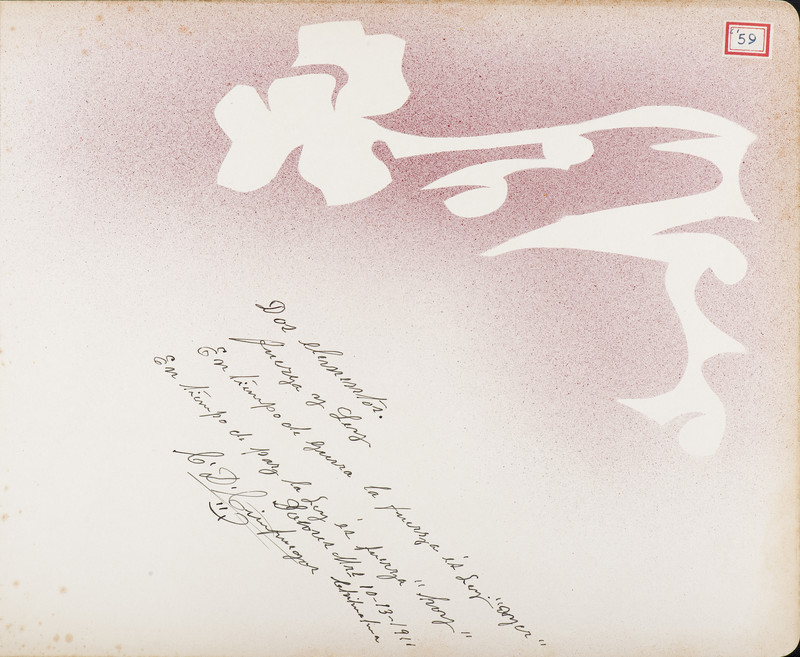 "59
Dos elementos.
fuerza y Ley
En tiempo de guerra la fuerza és Ley "ayer"
En tiempo de paz la Ley és fuerza "hoy"
C. D. Cienfuegos
Dolores Mrs 10-13-1911